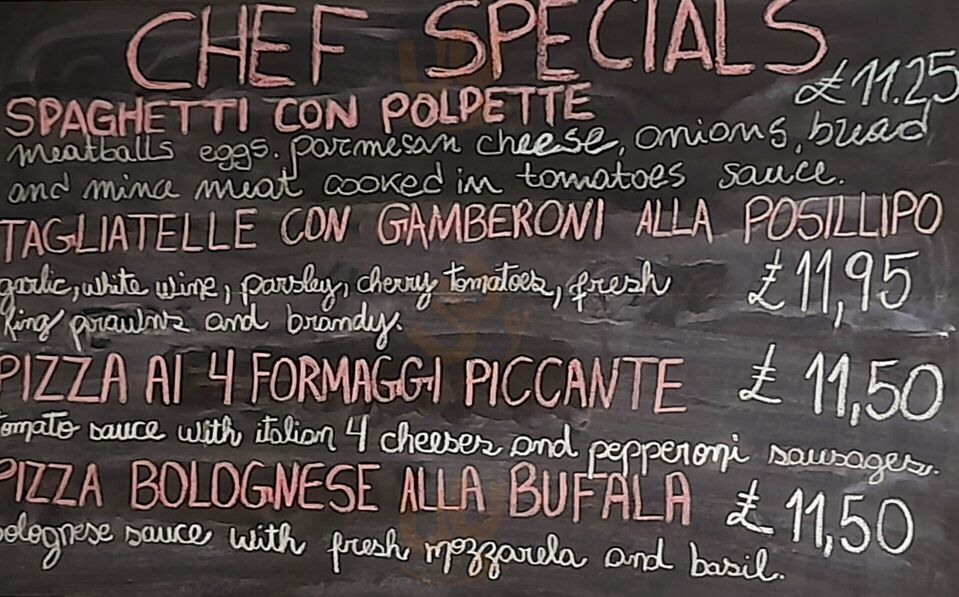 CHEF SPECIALS
SPAGHETTI CON POLPETTE £11.25
meatballs eggs. parmesan cheese, onions, bread,
and mince meat cooked in tomatoes sauce.
TAGLIATELLE CON GAMBERONI ALLA POSILLIPO
garlic, white wine, parsley, cherry tomatoes, fresh £11,95
King prawns and brandy.
PIZZA AI 4 FORMAGGI PICCANTE £11,50
tomato sauce with italian 4 cheeses and pepperoni sausages.
PIZZA BOLOGNESE ALLA BUFALA £11,50
bolognese sauce with fresh mozzarela and basil.